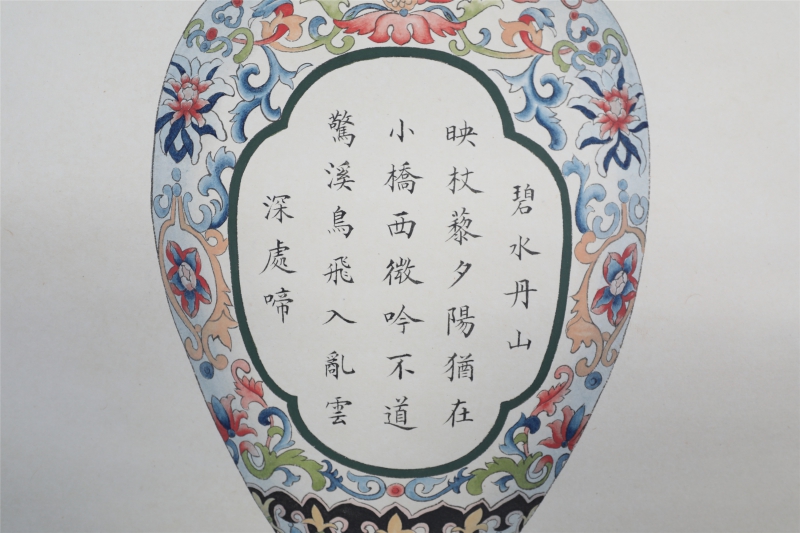 碧水丹山
映杖藜夕陽猶在
小橋西微吟不道
驚溪鳥飛入亂雲
深處啼